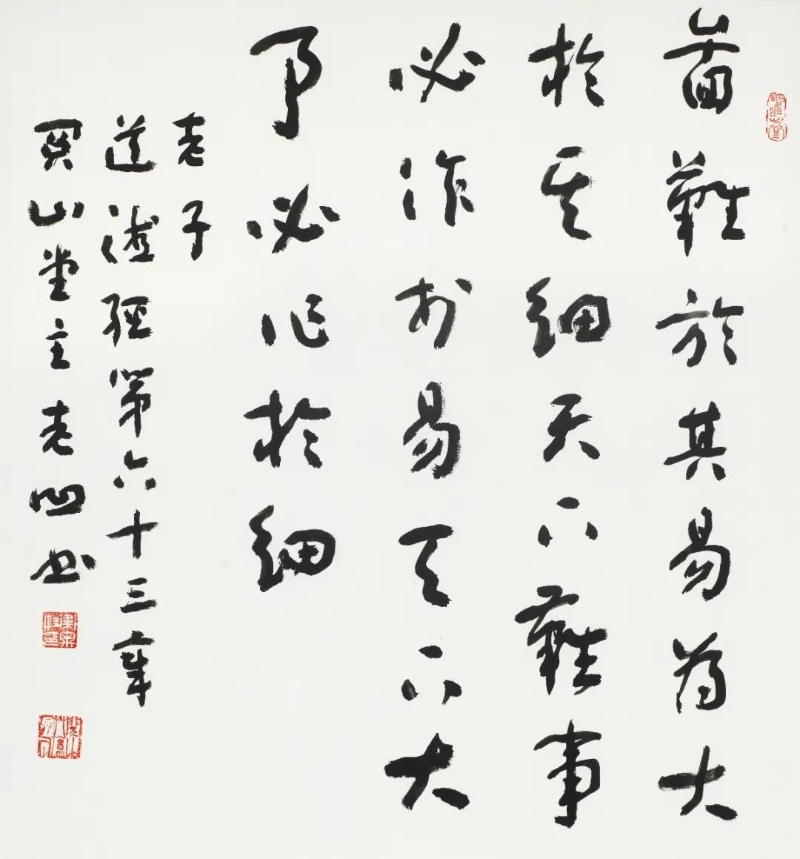 啚難於其易為大
於其細天下難事
必作於易天下大
事必作於細
老子
道德經第六十三章
山堂主老書